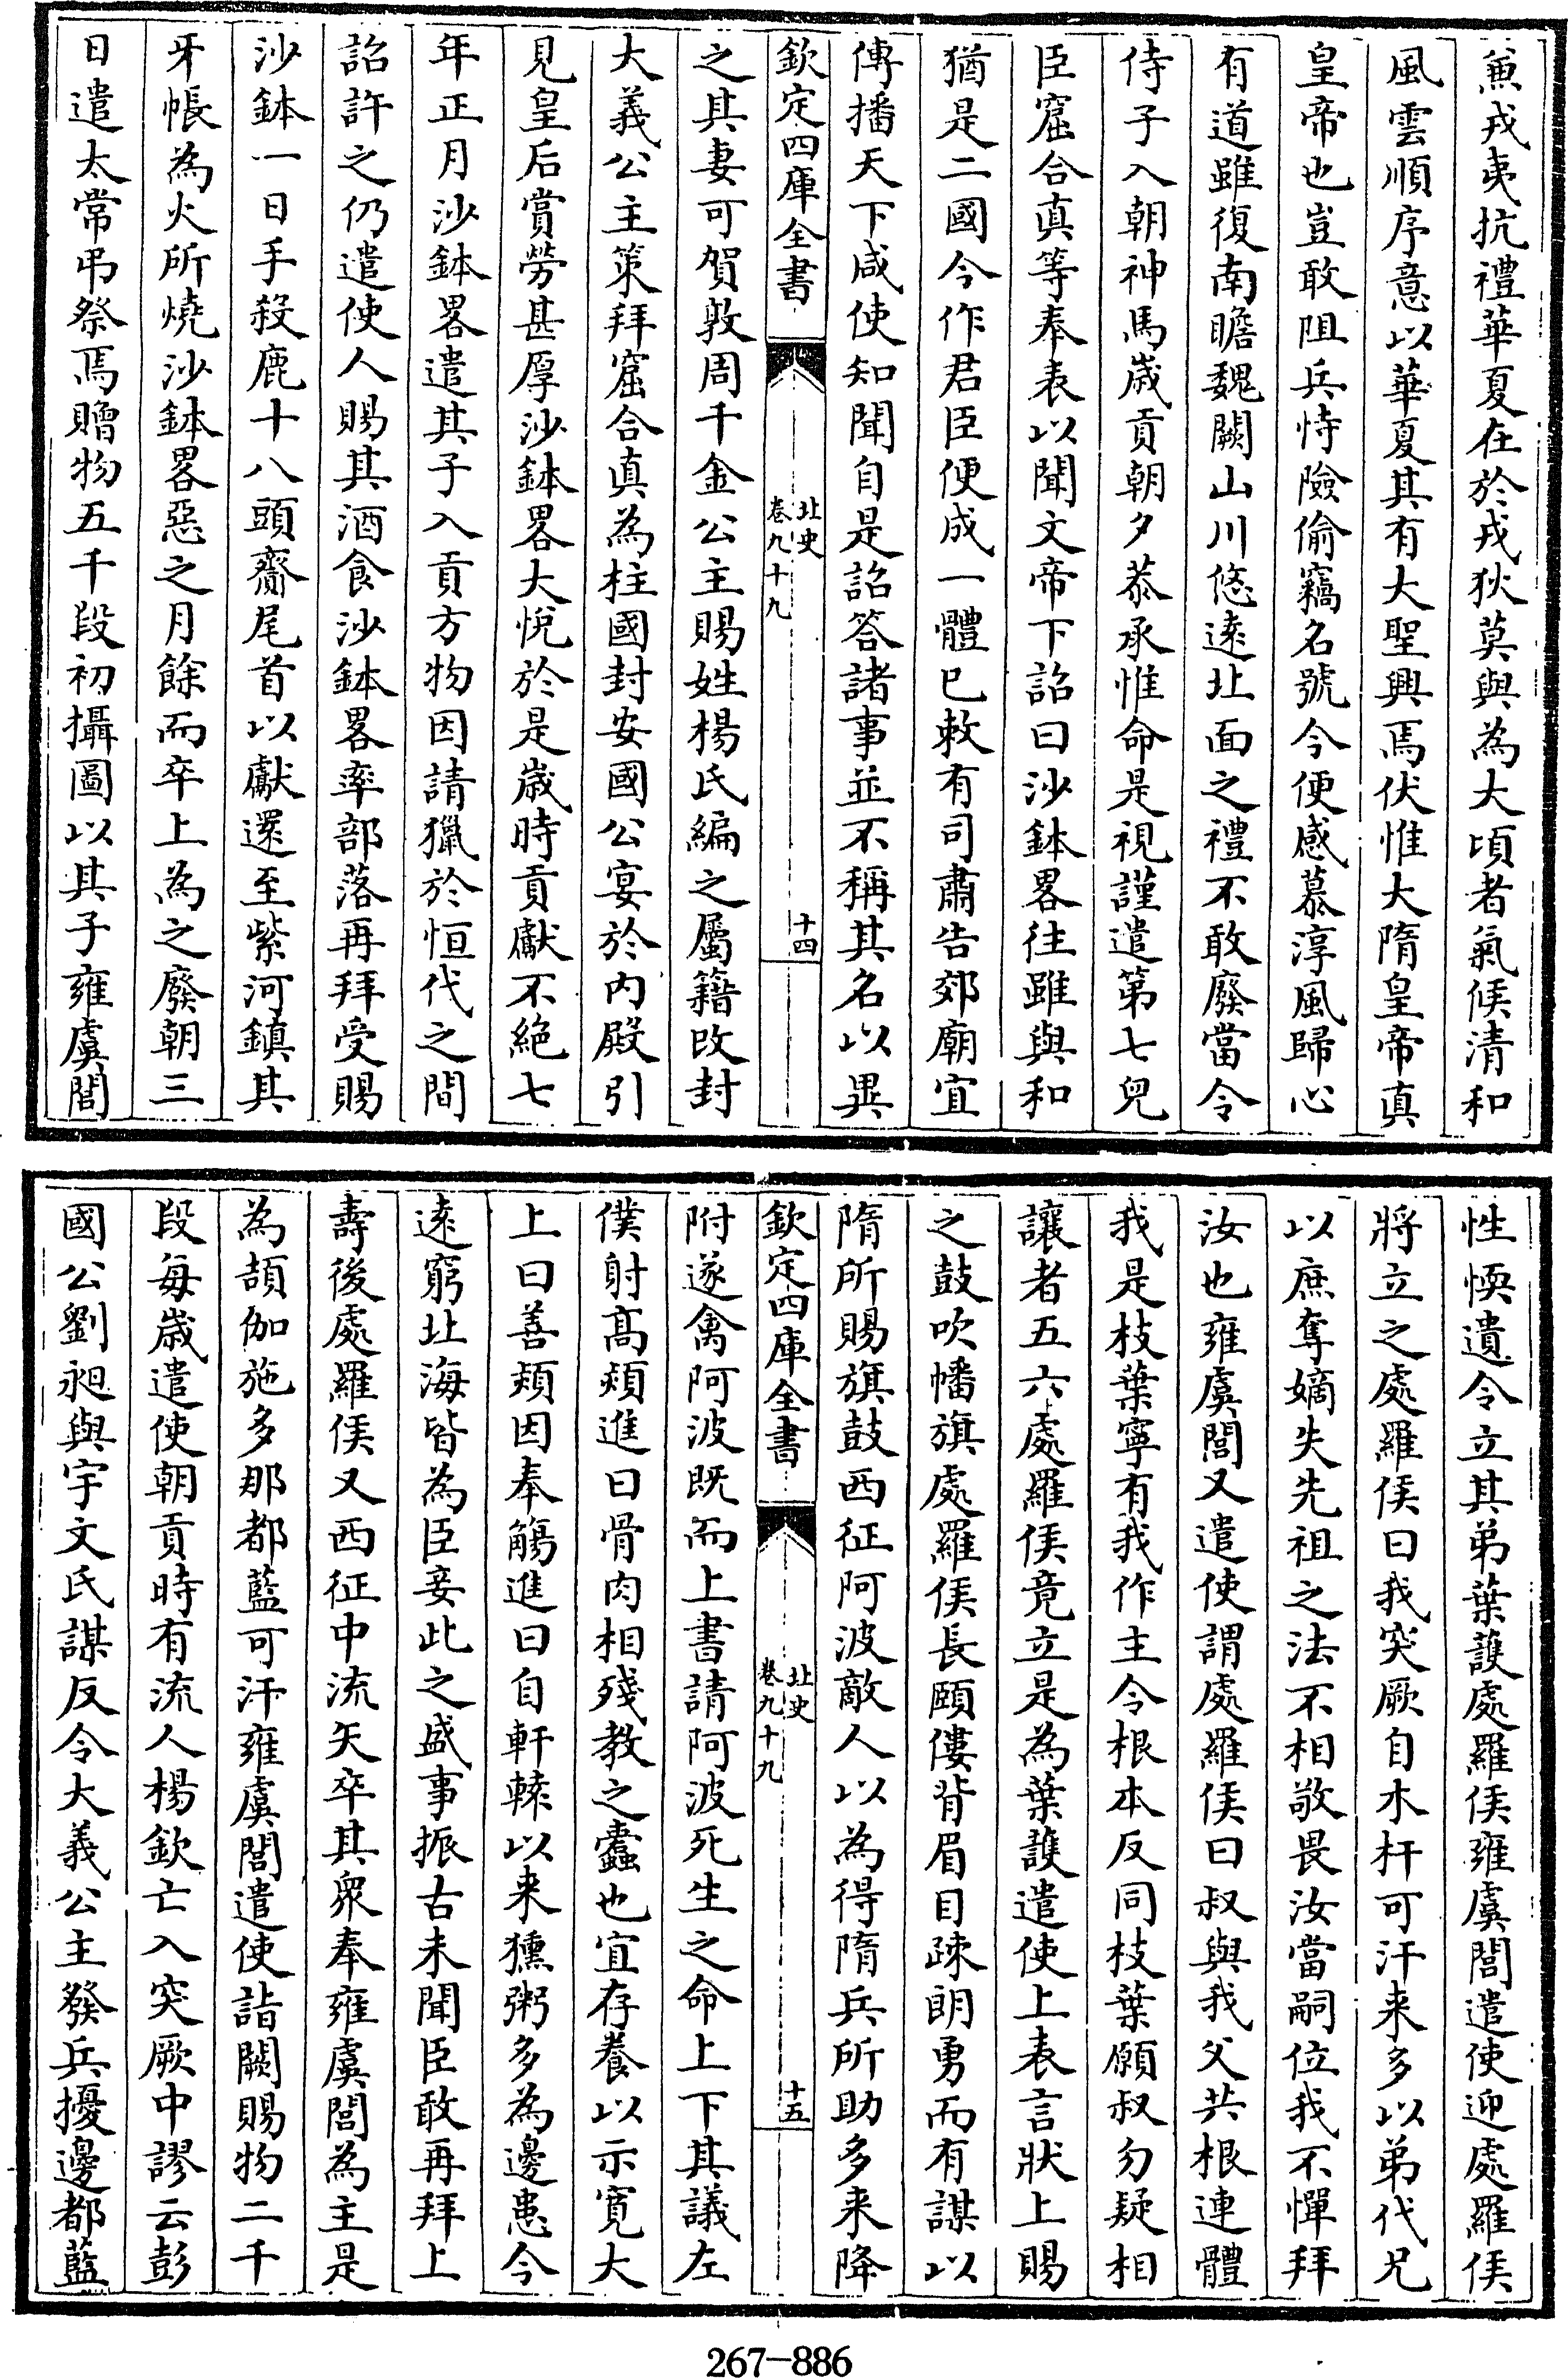 兼戎夷抗禮華夏在於戎狄莫與為大頃者氣候清和
風雲順序意以華夏其有大聖興焉伏惟大隋皇帝真
皇帝也豈敢阻兵恃險偷竊名號今便感慕淳風歸心
有道雖復南瞻魏闕山川悠遠北面之禮不敢廢當令
侍子入朝神馬歲貢朝夕恭承惟命是視謹遣第七兒
臣窟合真等奉表以聞文帝下詔曰沙鉢畧往雖與和
猶是二國今作君臣便成一體已敕有司肅告郊廟宜
傳播天下咸使知聞自是詔答諸事並不稱其名以異
欽定四庫全書
北史
卷九十九
十四
之其妻可賀敦周千金公主賜姓楊氏編之屬籍改封
大義公主策拜窟合真為柱國封安國公宴於内殿引
見皇后賞勞甚厚沙鉢畧大悅於是歲時貢獻不絕七
年正月沙鉢畧遣其子入貢方物因請獵於恒代之間
詔許之仍遣使人賜其酒食沙鉢畧率部落再拜受賜
沙鉢一日手殺鹿十八頭齎尾首以獻還至紫河鎮其
牙帳為火所燒沙鉢畧惡之月餘而卒上為之廢朝三
日遣太常弔祭焉贈物五千段初攝圖以其子雍虞閭
性愞遺令立其弟葉護處羅侯雍虞閭遣使迎處羅侯
將立之處羅侯曰我突厥自木杆可汗来多以弟代兄
以庶奪嫡失先祖之法不相敬畏汝當嗣位我不憚拜
汝也雍虞閭又遣使謂處羅侯曰叔與我父共根連體
我是枝葉寧有我作主令根本反同枝葉願叔勿疑相
讓者五六處羅侯竟立是為葉護遣使上表言狀上賜
之鼓吹幡旗處羅侯長頤僂背眉目疎朗勇而有謀以
隋所賜旗鼓西征阿波敵人以為得隋兵所助多来降
欽定四庫全書
北史
卷九十九
十五
附遂禽阿波既而上書請阿波死生之命上下其議左
僕射高熲進曰骨肉相殘教之蠹也宜存養以示寛大
上曰善熲因奉觴進曰自軒轅以来獯粥多為邊患今
遠窮北海皆為臣妾此之盛事振古未聞臣敢再拜上
壽後處羅侯又西征中流矢卒其衆奉雍虞閭為主是
為頡伽施多那都藍可汗雍虞閭遣使詣闕賜物二千
段每歲遣使朝貢時有流人楊欽亡入突厥中謬云彭
國公劉昶與宇文氏謀反令大義公主發兵擾邊都藍
267-886